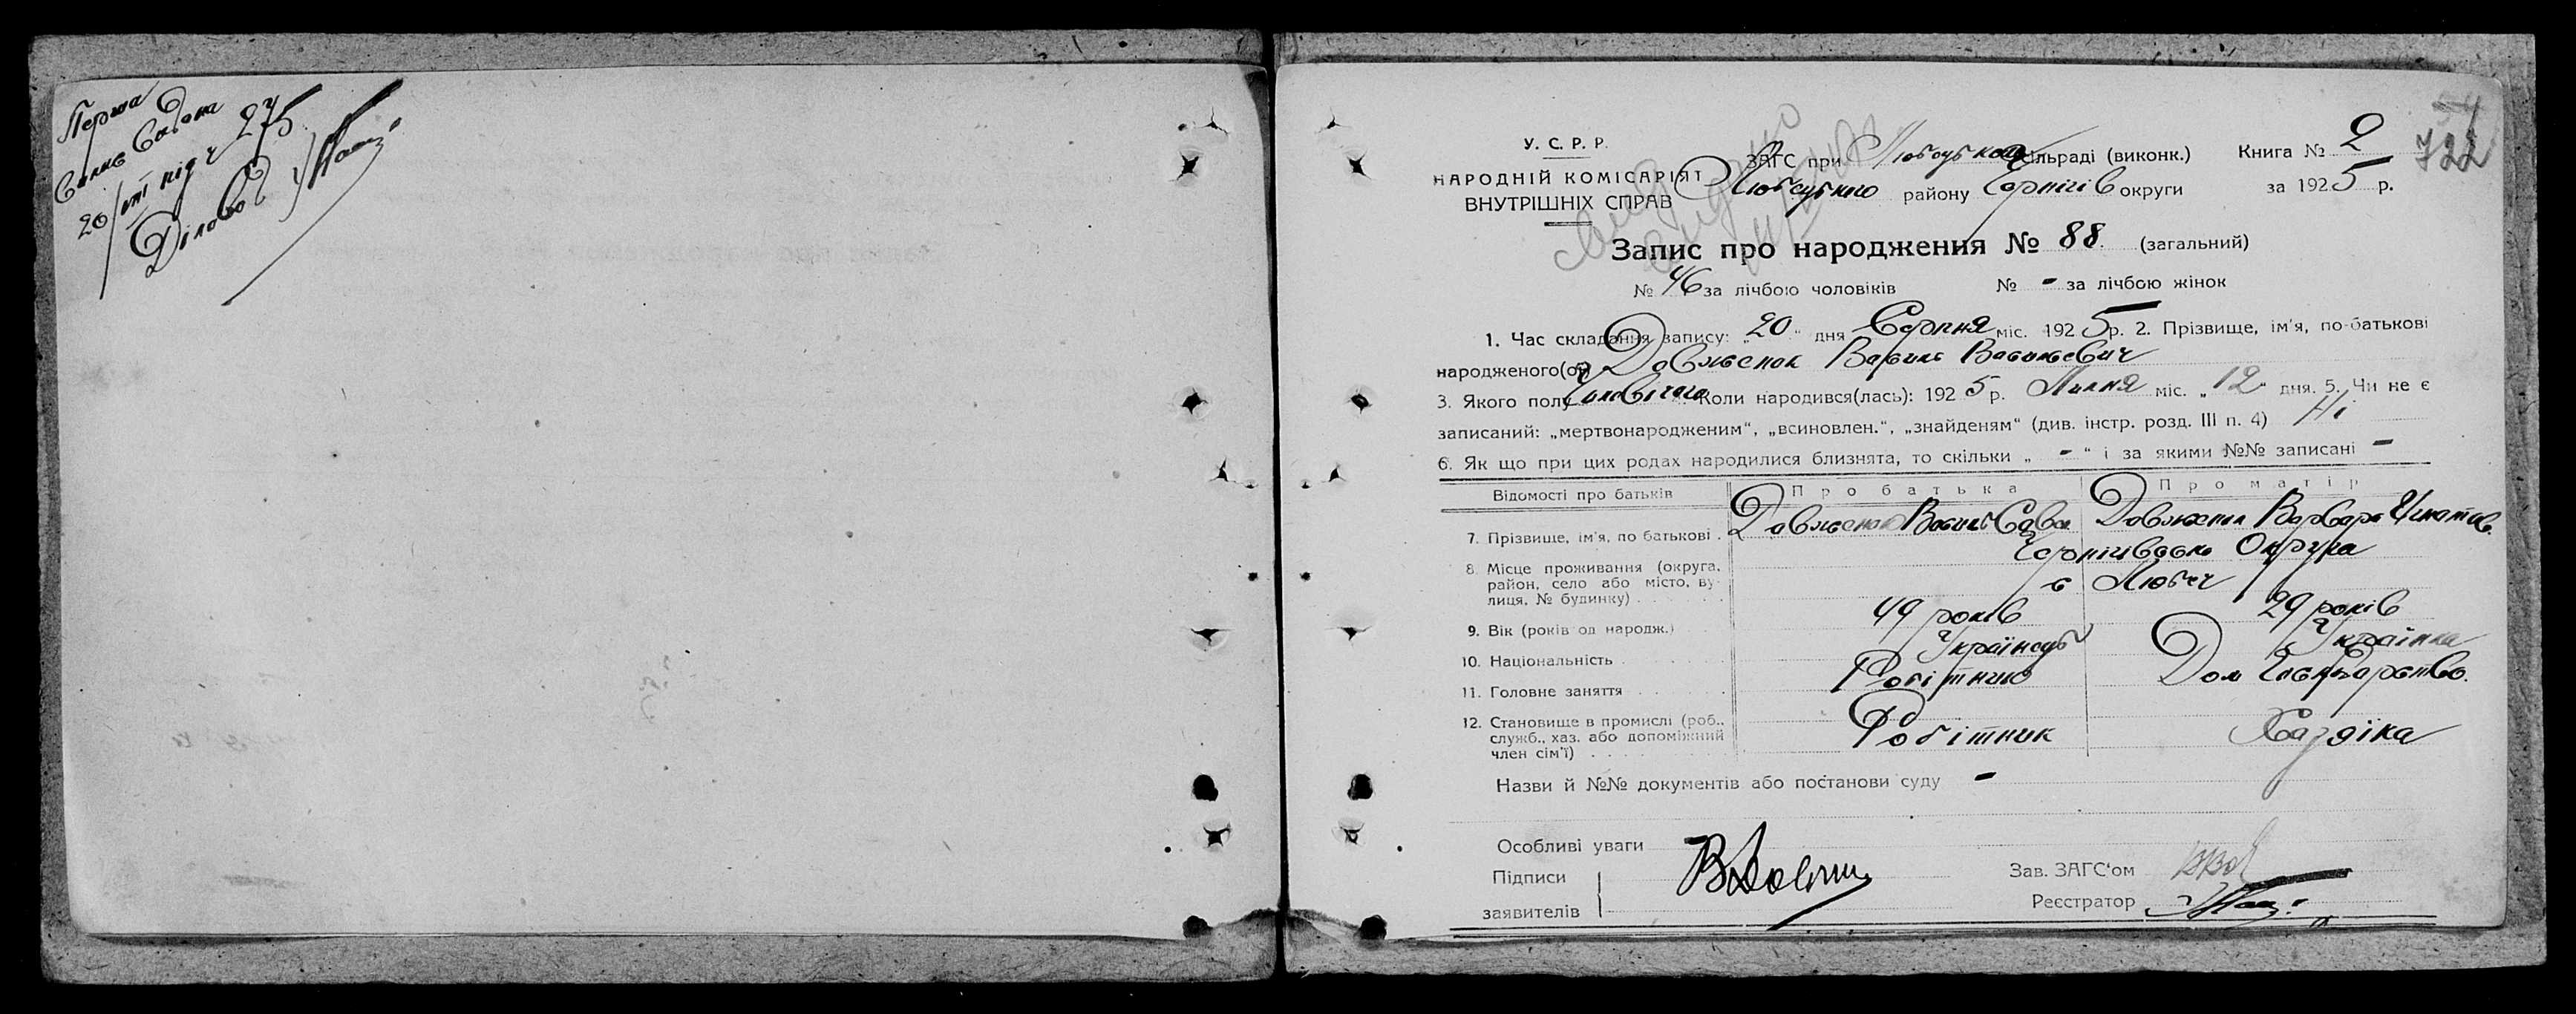 Перша
20/VIII під ч 275
Діловод
722
У. С. Р. Р.
НАРОДНІЙ КОМІСАРІЯТ
ВНУТРІШНІХ СПРАВ
ЗАГС при Любецькому сільраді (виконк.) Книга № 2
Любецького району Чернігів округи за 1925 р.
Запис про народження № 88. (загальний)
№ 46 за лічбою чоловіків № - за лічбою жінок
1. Час складання запису: „20“ дня Серпня міс. 1925 р. 2. Прізвище, ім'я, по-батькові
народженого(ої) Довженок Василь Васильевич
3. Якого полу Чоловічого Коли народився(лась): 1925 р. Липня міс. „12“ дня. 5. Чи не є
записаний: „мертвонародженим“, „всиновлен.“, „знайденям“ (див. інстр. розд. III п. 4) Ні
6. Як що при цих родах народилися близнята, то скільки „ - “ і за якими №№ записані -
Відомості про батьків Про батька Про матір
7. Прізвище, ім'я, по батькові . Довженок Василь Сава Довженок Варвара Игнатов.
8. Місце проживання (округа, район, село або місто, вулиця, № будинку) Чернігівська Округа
с Любеч
9. Вік (років од народж.) 49 років 29 років
10. Національність Українець Українка
11. Головне заняття Робітник Дом Господарство.
12. Становище в промислі (роб., служб., хаз. або допоміжний член сім'ї) Робітник Хазяїка
Назви й №№ документів або постанови суду -
Особливі уваги
Підписи
заявителів
Зав. ЗАГС'ом
Реєстратор